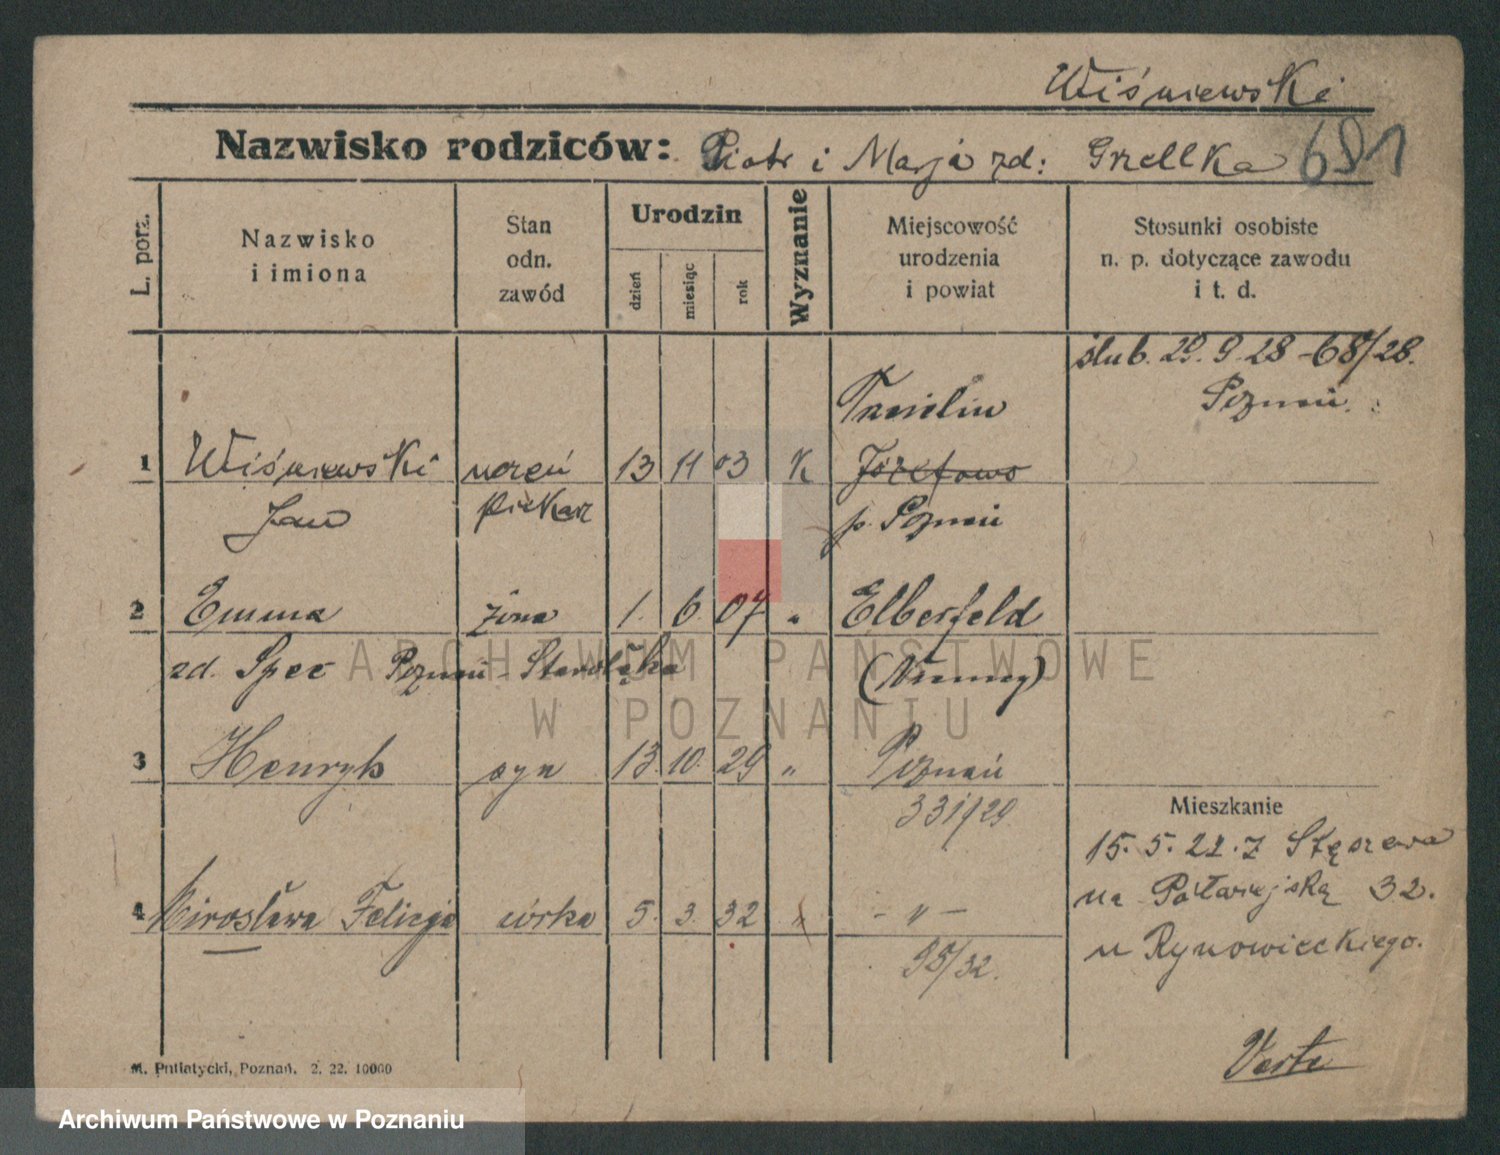 Wiśniewski
Nazwisko rodziców: Piotr i Marja zd: Grzelka 691
L. porz.
Nazwisko
i imiona
Stan
odn.
zawód
Urodzin
dzień
miesiąc
rok
Wyznanie
Miejscowość
urodzenia
i powiat
Stosunki osobiste
n. p. dotyczące zawodu
i t. d.
ślub. 29. 9. 28 - 68/28.
Poznań.
1 Wiśniewski uczeń 13 11 03 K Józefowo
Jan piekarz p. Poznań
2 Emma żona 1. 6. 07 " Elberfeld
zd. Spec Poznań - Starołęka (Niemcy)
3 Henryk syn 13. 10. 29 " Poznań
331/29
Mieszkanie
15. 5. 22. z Stęszewa
na Półwiejską 32.
u Rynowieckiego.
4 Mirosława Felicja córka 5. 3. 32 " - " -
95/32.
Verte
M. Putiatycki, Poznań. 2. 22. 10000
ARCHIWUM PAŃSTWOWE
W POZNANIU
Archiwum Państwowe w Poznaniu